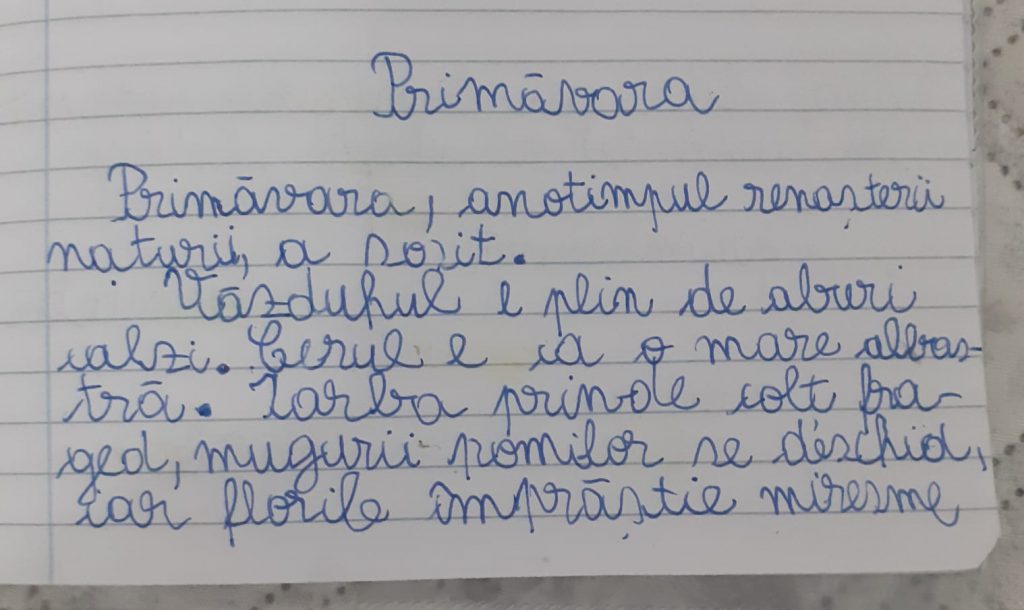 Primăvara
Primăvara, anotimpul renașterii
naturii, a sosit.
Văzduhul e plin de aburi
calzi. Cerul e ca o mare albas-
tră. Iarba prinde colt fra-
ged, mugurii pomilor se deschid,
iar florile împrăștie miresme